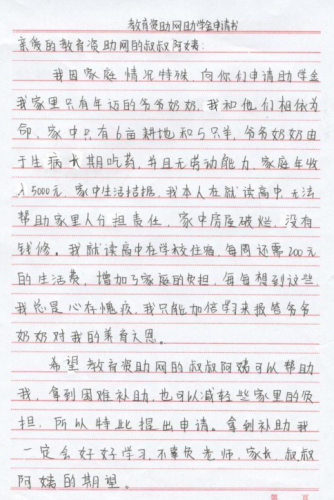 教育资助网助学金申请书
亲爱的教育资助网的叔叔阿姨:
我因家庭情况特殊,向你们申请助学金
我家里只有年迈的爷爷奶奶,我和他们相依为
命,家中只有6亩耕地和5只羊,爷爷奶奶由
于生病长期吃药,并且无劳动能力,家庭年收
入5000元,家中生活拮据,我本人在就读高中,无法
帮助家里人分担责任,家中房屋破烂,没有
钱修。我就读高中在学校住宿,每周还需200元
的生活费,增加了家庭的负担,每每想到这些
我总是心存愧疚,我只能加倍学习来报答爷爷
奶奶对我的养育之恩。
希望教育资助网的叔叔阿姨可以帮助
我,拿到困难补助,也可以减轻些家里的负
担,所以特此提出申请。拿到补助我
一定会好好学习,不辜负老师,家长,叔叔
阿姨的期望。